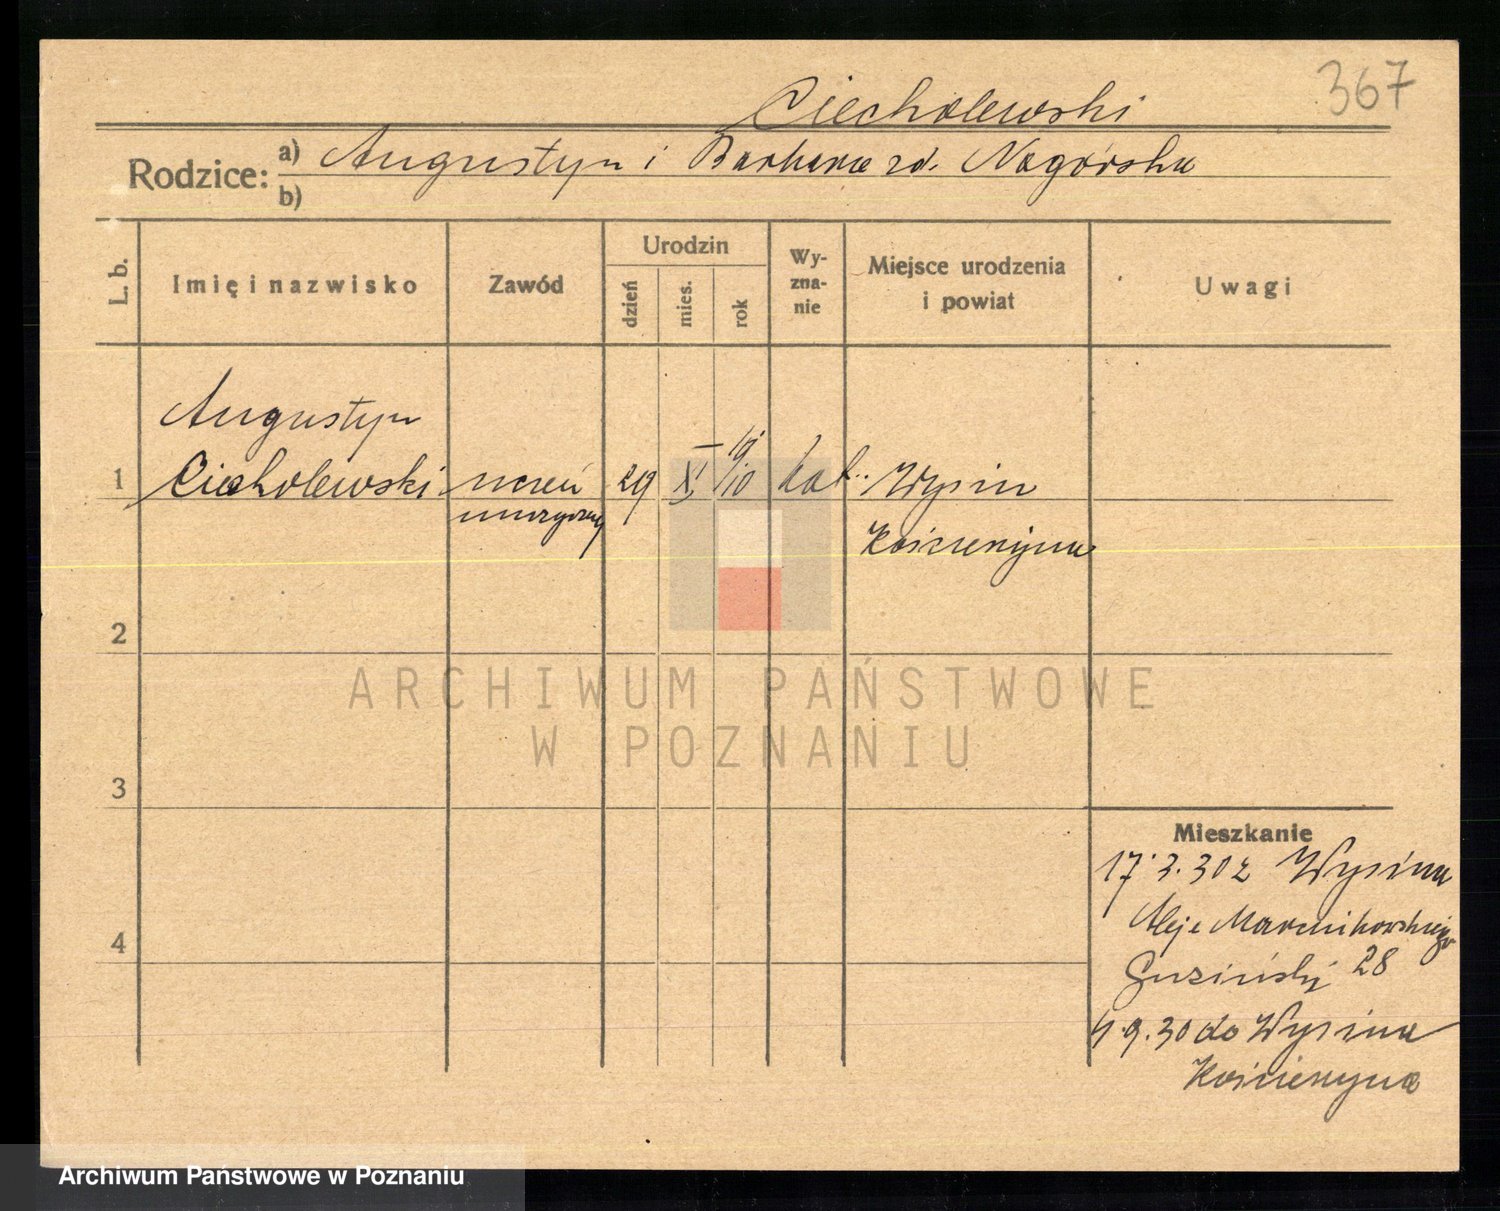 367
Ciecholewski
Rodzice: a) Augustyn i Barbara zd. Nagórska
b)
L. b. Imię i nazwisko Zawód Urodzin dzień mies. rok Wy-zna-nie Miejsce urodzenia i powiat Uwagi
Augustyn
1 Ciecholewski uczeń 29 XI 19/10 kat. Wysin
muzyczny Kościerzyna
2
ARCHIWUM PAŃSTWOWE
W POZNANIU
3
Mieszkanie
17.3.30 z Wysina
Aleje Marcinkowskiego
28
4
.9.30 do Wysina
Kościerzyna
Archiwum Państwowe w Poznaniu